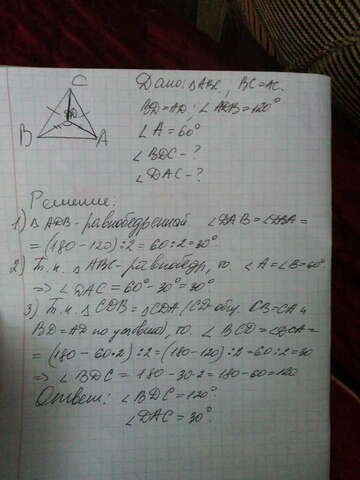 C
D
B
A
Дано: △ABC, BC=AC.
BD=AD; ∠ADB=120°
∠A=60°
∠BDC-?
∠DAC-?
Решение:
1) △ADB-равнобедренный. ∠DAB=∠DBA=
=(180-120):2=60:2=30°
2) Т.к. △ABC-равнобедр, то. ∠A=∠B=60°
⇒ ∠DAC=60°-30°=30°
3) Т.к. △CDB=△CDA (CD-общ. CB=CA и
BD=AD по условию), то. ∠BCD=∠DCA=
=(180-60·2):2=(180-120):2=60:2=30
⇒ ∠BDC=180-30·2=180-60=120
Ответ: ∠BDC=120°.
∠DAC=30°.